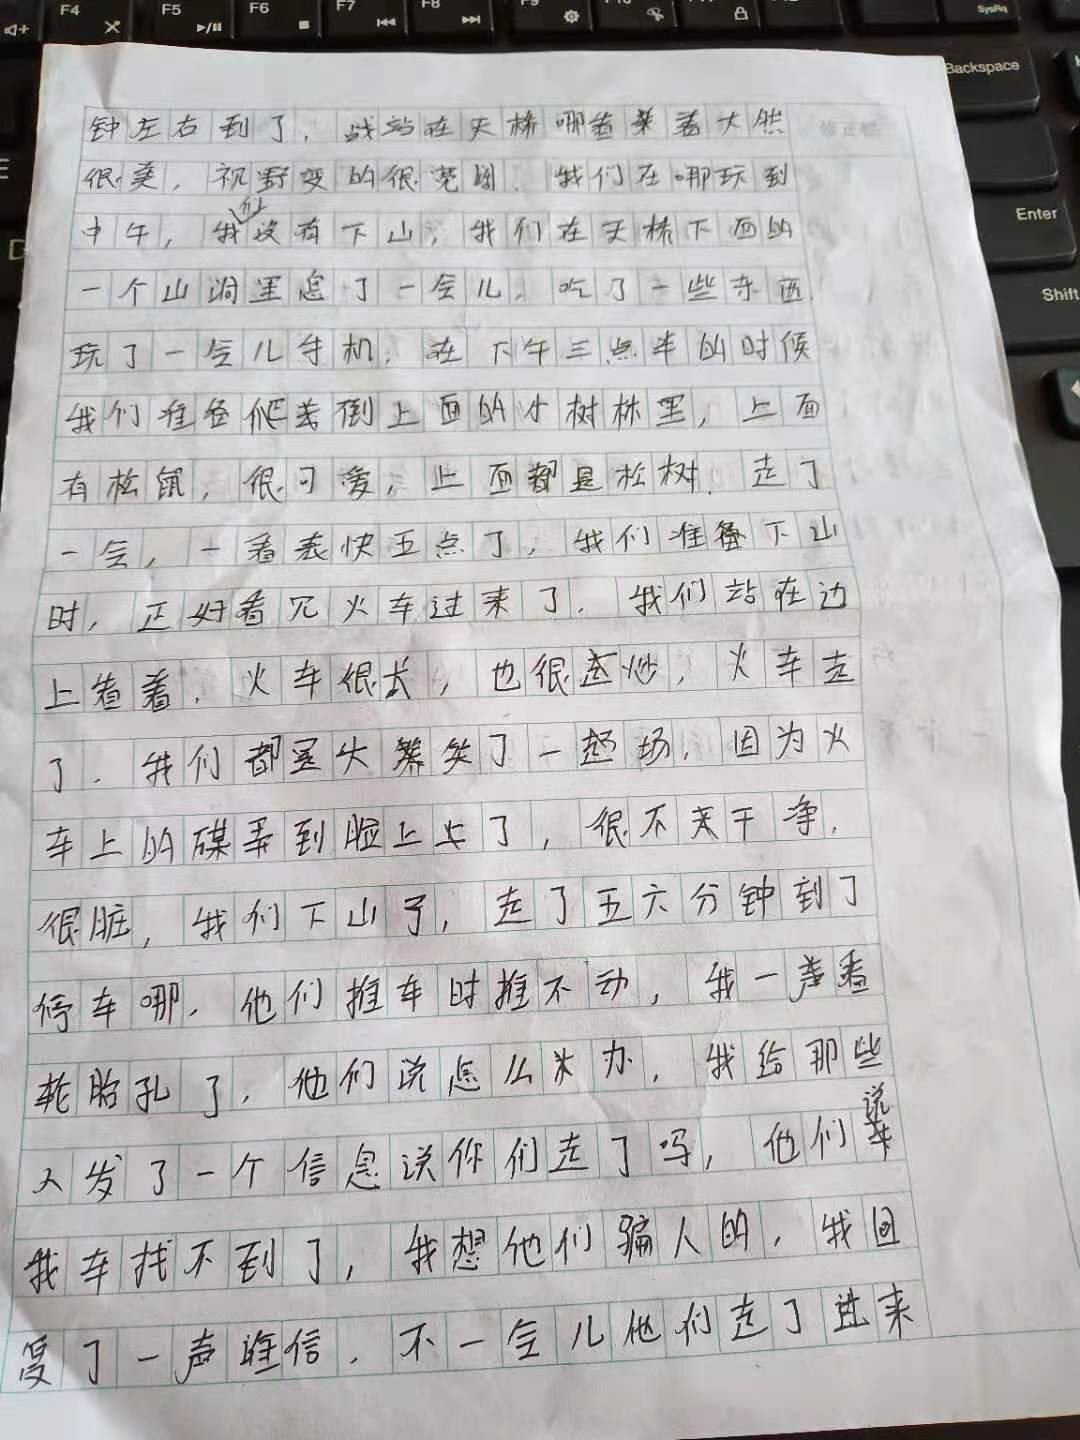 F4 F5 F6 F7 F8 F9 F10
SysRq
Backspace
Enter
Shift
修正栏
钟左右到了，我站在天桥哪看菜着大然
很美，视野变的很宽阔，我们在哪玩到
中午，我们没有下山，我们在天桥下面的
一个山洞里息了一会儿，吃了一些东西
玩了一会儿手机，在下午三点半的时候
我们准备爬着倒上面的小树林里，上面
有松鼠，很可爱，上面都是松树，走了
一会，一看表快五点了，我们准备下山
时，正好看见火车过来了，我们站在边
上看着，火车很长，也很吵，火车走
了，我们都是大笑了一场，因为火
车上的碟弄到脸上上了，很不干净，
很脏，我们下山了，走了五六分钟到了
停车哪，他们推车时推不动，我一看
轮胎孔了，他们说怎么办，我给那些
人发了一个信息说你们走了吗，他们说
我车找不到了，我想他们骗人的，我回
复了一声谁信，不一会儿他们走了进来